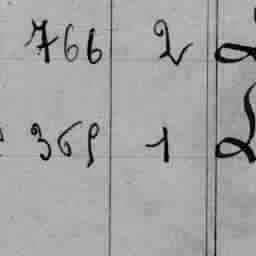 766 2
369 1